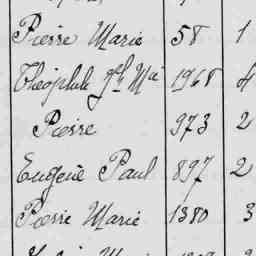 Pierre Marie 58 1
Théophile Jh Mie 1968 4
Pierre 973 2
Eugène Paul 897 2
Pierre Marie 1380 3